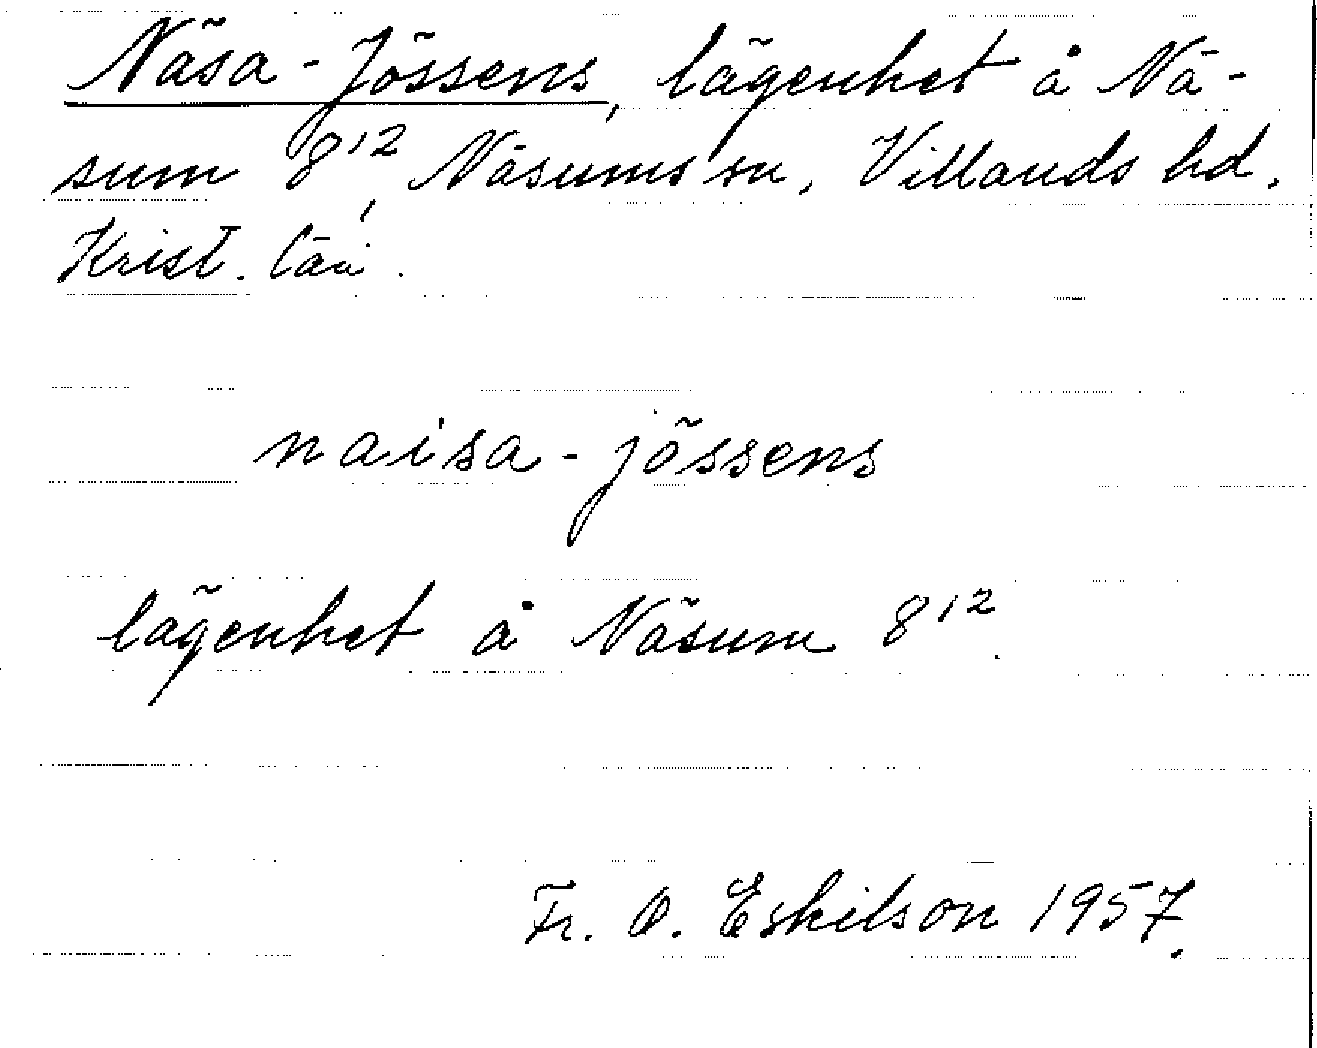 Näsa-Jössens, lägenhet å Nä-
sum 8¹², Näsums sn, Villands hd,
Krist. län.
naisa-jössens
lägenhet å Näsum 8¹².
Fr. O. Eskilson 1957.